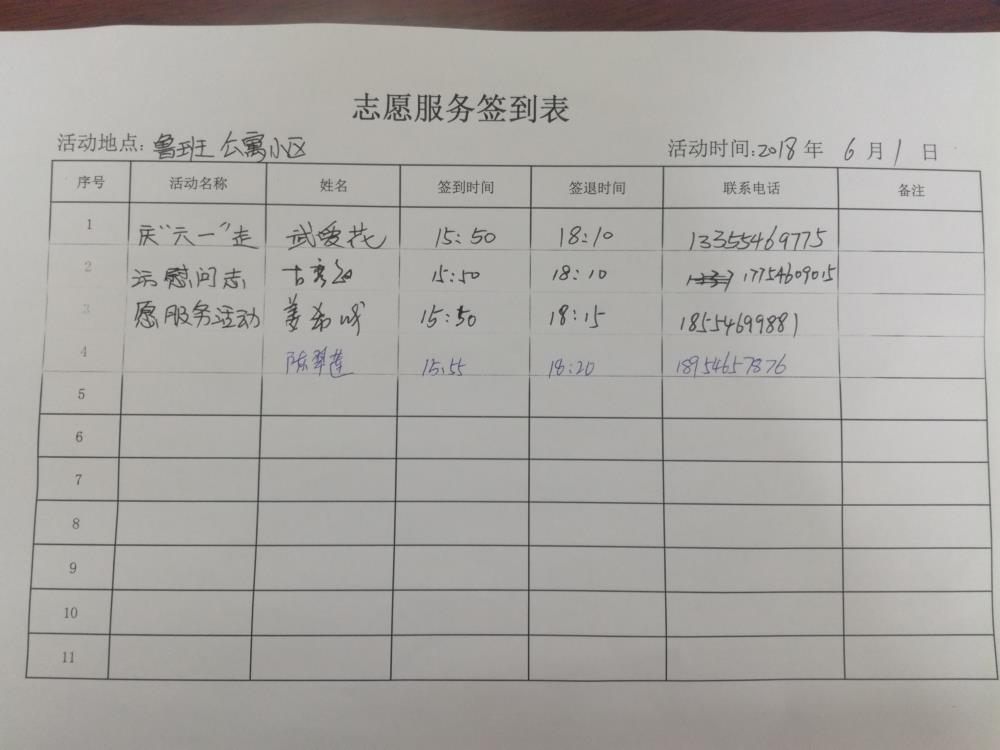 志愿服务签到表
活动地点: 鲁班公寓小区 活动时间: 2018 年 6 月 1 日
序号 活动名称 姓名 签到时间 签退时间 联系电话 备注
1 庆“六一”走 武爱花 15:50 18:10 13355469775
2 访慰问志 15:50 18:10 17754609015
3 愿服务活动 姜希 15:50 18:15 18554699881
4 陈翠莲 15:55 18:20 18954657876
5
6
7
8
9
10
11